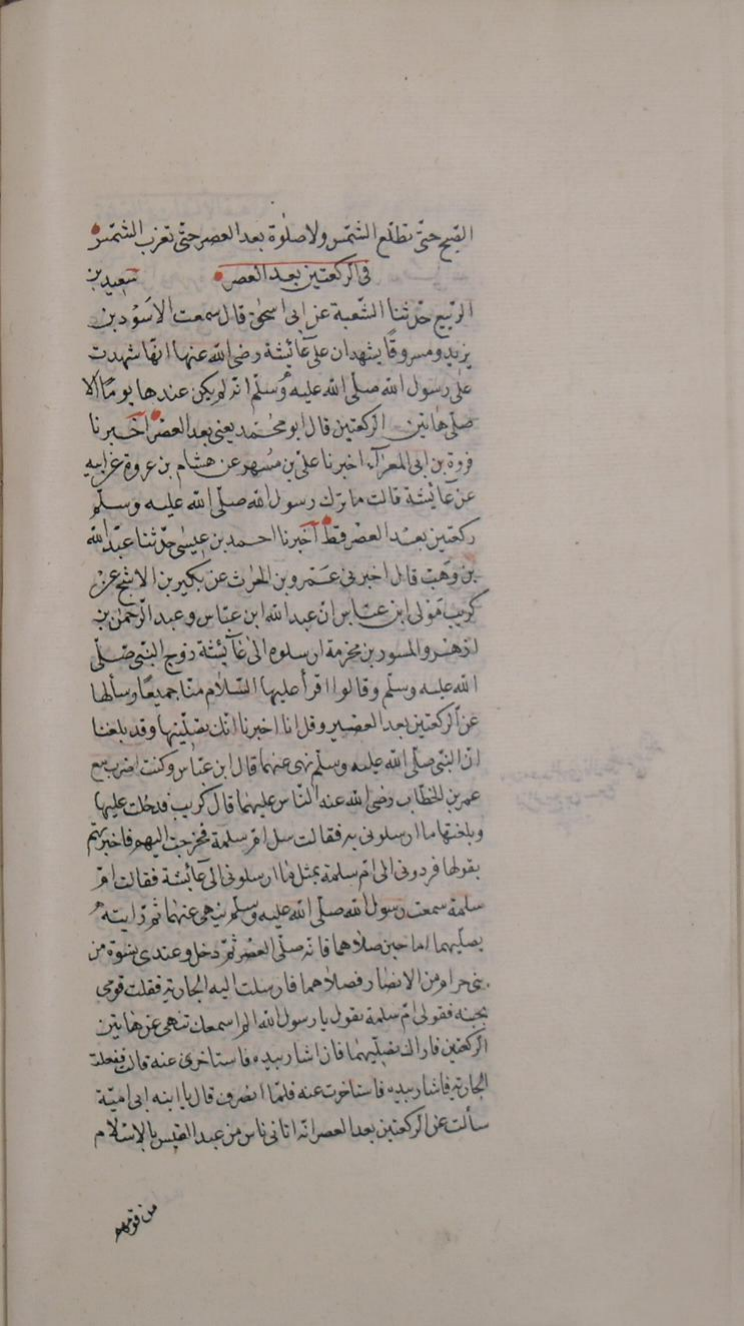 الصبح حتى تطلع الشمس ولا صلوة بعد العصر حتى تغرب الشمس
فى الركعتين بعد العصر سعيد بن
الربيع حدثنا الشعبة عن ابى اسحق قال سمعت الاسود بن
يزيد ومسروقا يشهدان على عائشة رضى الله عنها انها شهدت
على رسول الله صلى الله عليه وسلم انه لم يكن عندها يوما الا
صلى هاتين الركعتين قال ابو محمد يعنى بعد العصر اخبرنا
فروة بن ابى المعرآء اخبرنا على بن مسهر عن هشام بن عروة عن ابيه
عن عائشة قالت ما ترك رسول الله صلى الله عليه وسلم
ركعتين بعد العصر قط اخبرنا احمد بن عيسى حدثنا عبد الله
بن وهب قال اخبرنى عمرو بن الحرث عن بكير بن الاشج عن
كريب مولى ابن عباس ان عبد الله ابن عباس وعبد الرحمن بن
ازهر والمسور بن مخرمة ارسلوه الى عائشة زوج النبى صلى
الله عليه وسلم وقالوا اقرأ عليها السلام منا جميعا وسألها
عن الركعتين بعد العصير وقل انا اخبرنا انك تصلينها وقد بلغنا
ان النبى صلى الله عليه وسلم نهى عنهما قال ابن عباس وكنت اضرب مع
عمر بن الخطاب رضى الله عنه الناس عليهما قال كريب فدخلت عليها
وبلغتها ما ارسلونى به فقالت سل ام سلمة فخرجت اليهم فاخبرتهم
بقولها فردونى الى ام سلمة بمثل ما ارسلونى الى عائشة فقالت ام
سلمة سمعت رسول الله صلى الله عليه وسلم ينهى عنهما ثم رايته
يصليهما اما حين صلاهما فانه صلى العصر ثم دخل وعندى نسوة من
بنى حرام من الانصار فصلاهما فارسلت اليه الجارية فقلت قومى
بجنبه فقولى ام سلمة تقول يا رسول الله الم اسمعك تنهى عن هاتين
الركعتين فاراك تصليهما فان اشار بيده فاستاخرى عنه قالت ففعلت
الجارية فاشار بيده فاستاخرت عنه فلما انصرف قال يا ابنه ابى امية
سألت عن الركعتين بعد العصر انه اتانى ناس من عبد القيس بالاسلام
من قومهم